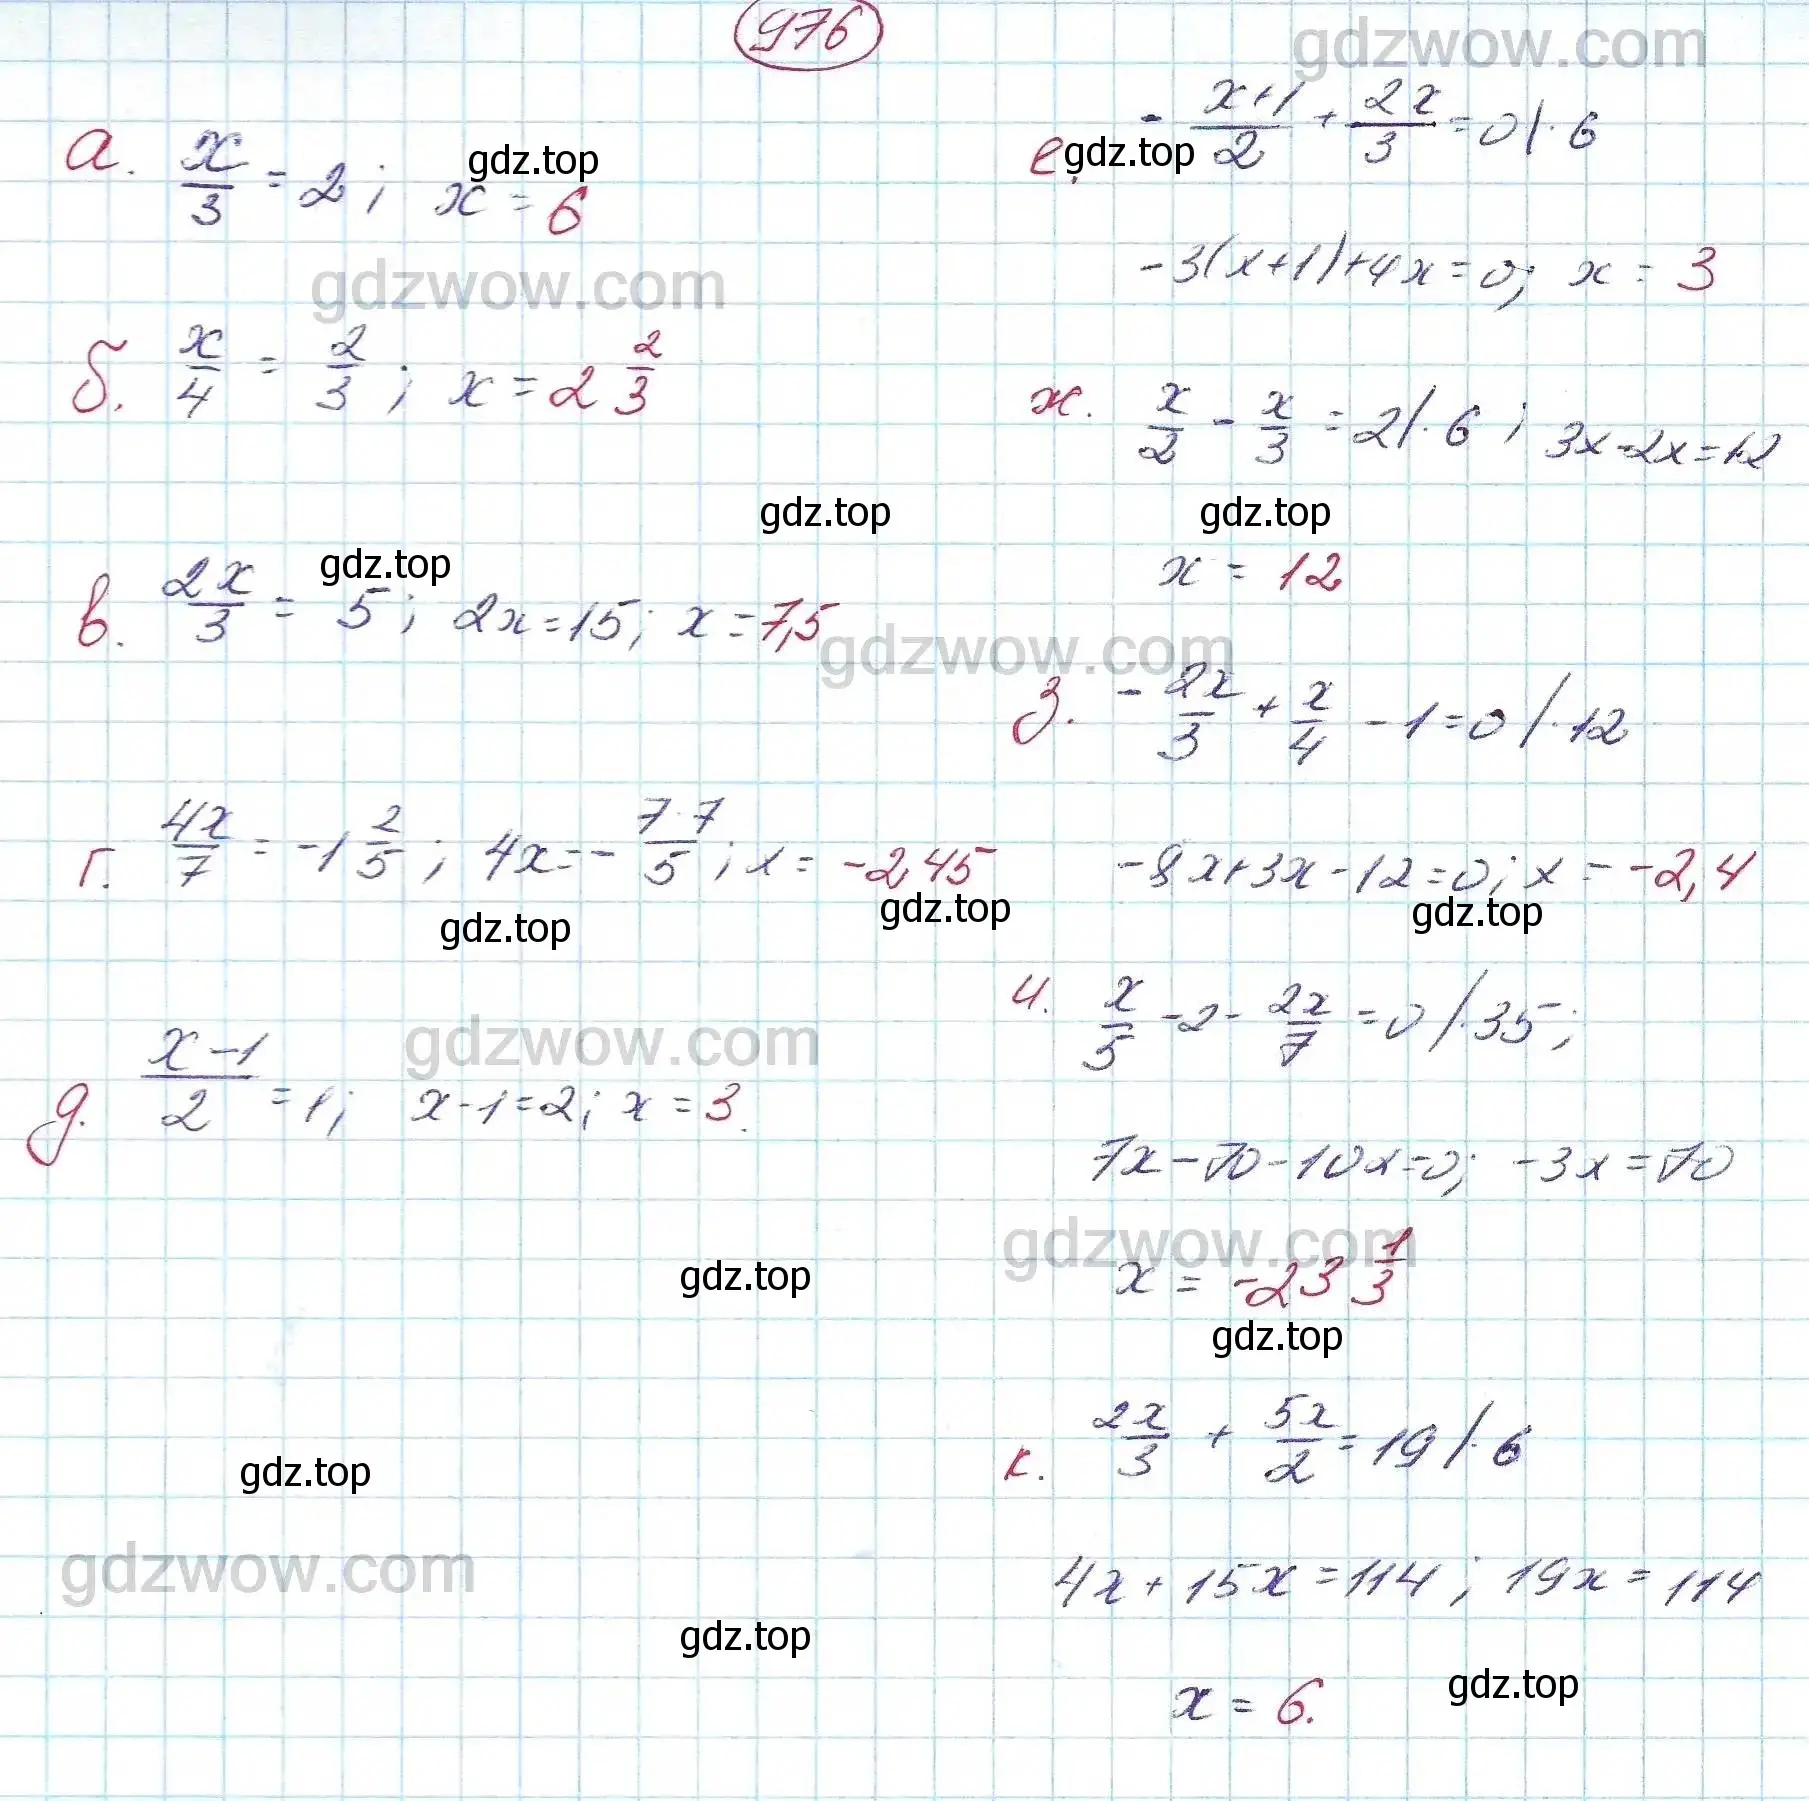 976
а. x/3 = 2; x = 6
б. x/4 = 2/3; x = 2 2/3
в. 2x/3 = 5; 2x=15; x=7,5
г. 4x/7 = -1 2/5; 4x=- 7·7/5; x = -2,45
д. x-1/2 = 1; x-1=2; x=3.
е. - x+1/2 + 2x/3 = 0 |·6
-3(x+1)+4x=0; x = 3
ж. x/2 - x/3 = 2 |·6; 3x-2x=12
x = 12
з. - 2x/3 + x/4 - 1 = 0 |·12
-8x+3x-12=0; x = -2,4
и. x/5 - 2 - 2x/7 = 0 |·35;
7x-70-10x=0; -3x=70
x = -23 1/3
к. 2x/3 + 5x/2 = 19 |·6
4x+15x=114; 19x=114
x = 6.
gdzwow.com
gdz.top
gdz.top
gdzwow.com
gdz.top
gdz.top
gdz.top
gdzwow.com
gdz.top
gdz.top
gdz.top
gdzwow.com
gdzwow.com
gdz.top
gdz.top
gdz.top
gdzwow.com
gdz.top
gdz.top